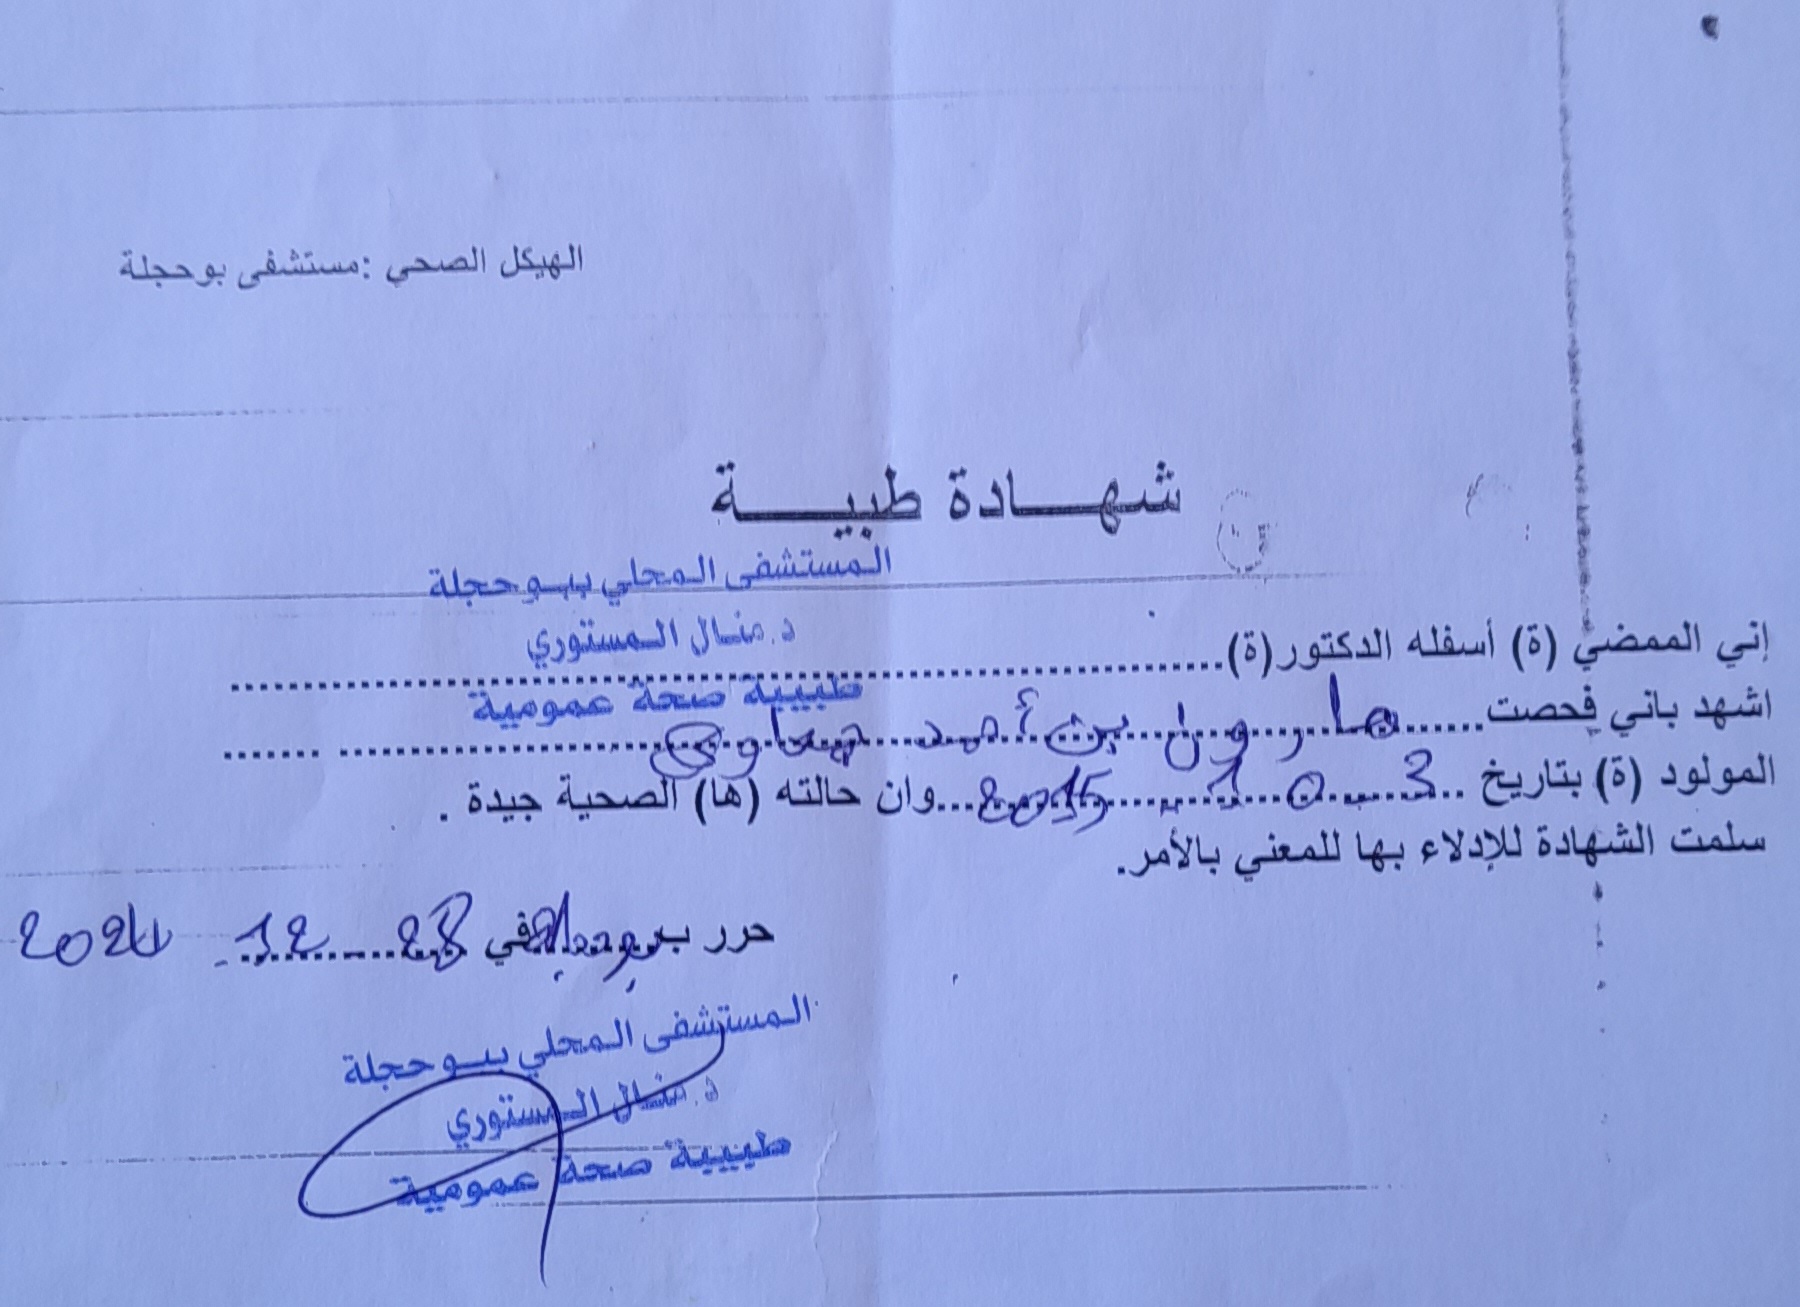 الهيكل الصحي :مستشفى بوحجلة
شهـــادة طبيـــــة
المستشفى المحلي ببوحجلة
د.منال المستوري
طبيبة صحة عمومية
إني الممضي (ة) أسفله الدكتور(ة)
اشهد باني فحصت هارون بن أحمد
المولود (ة) بتاريخ 3 10 2015 وان حالته (ها) الصحية جيدة .
سلمت الشهادة للإدلاء بها للمعني بالأمر.
حرر ب بوحجلة في 28 12 2024
المستشفى المحلي ببوحجلة
د.منال المستوري
طبيبة صحة عمومية